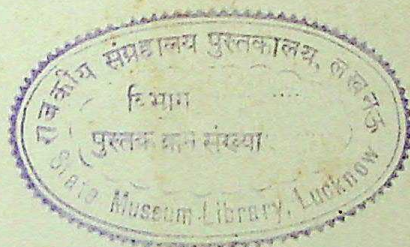 राजकीय संग्रहालय पुस्तकालय, लखनऊ
विभाग
पुस्तक संख्या
State Museum Library, Lucknow